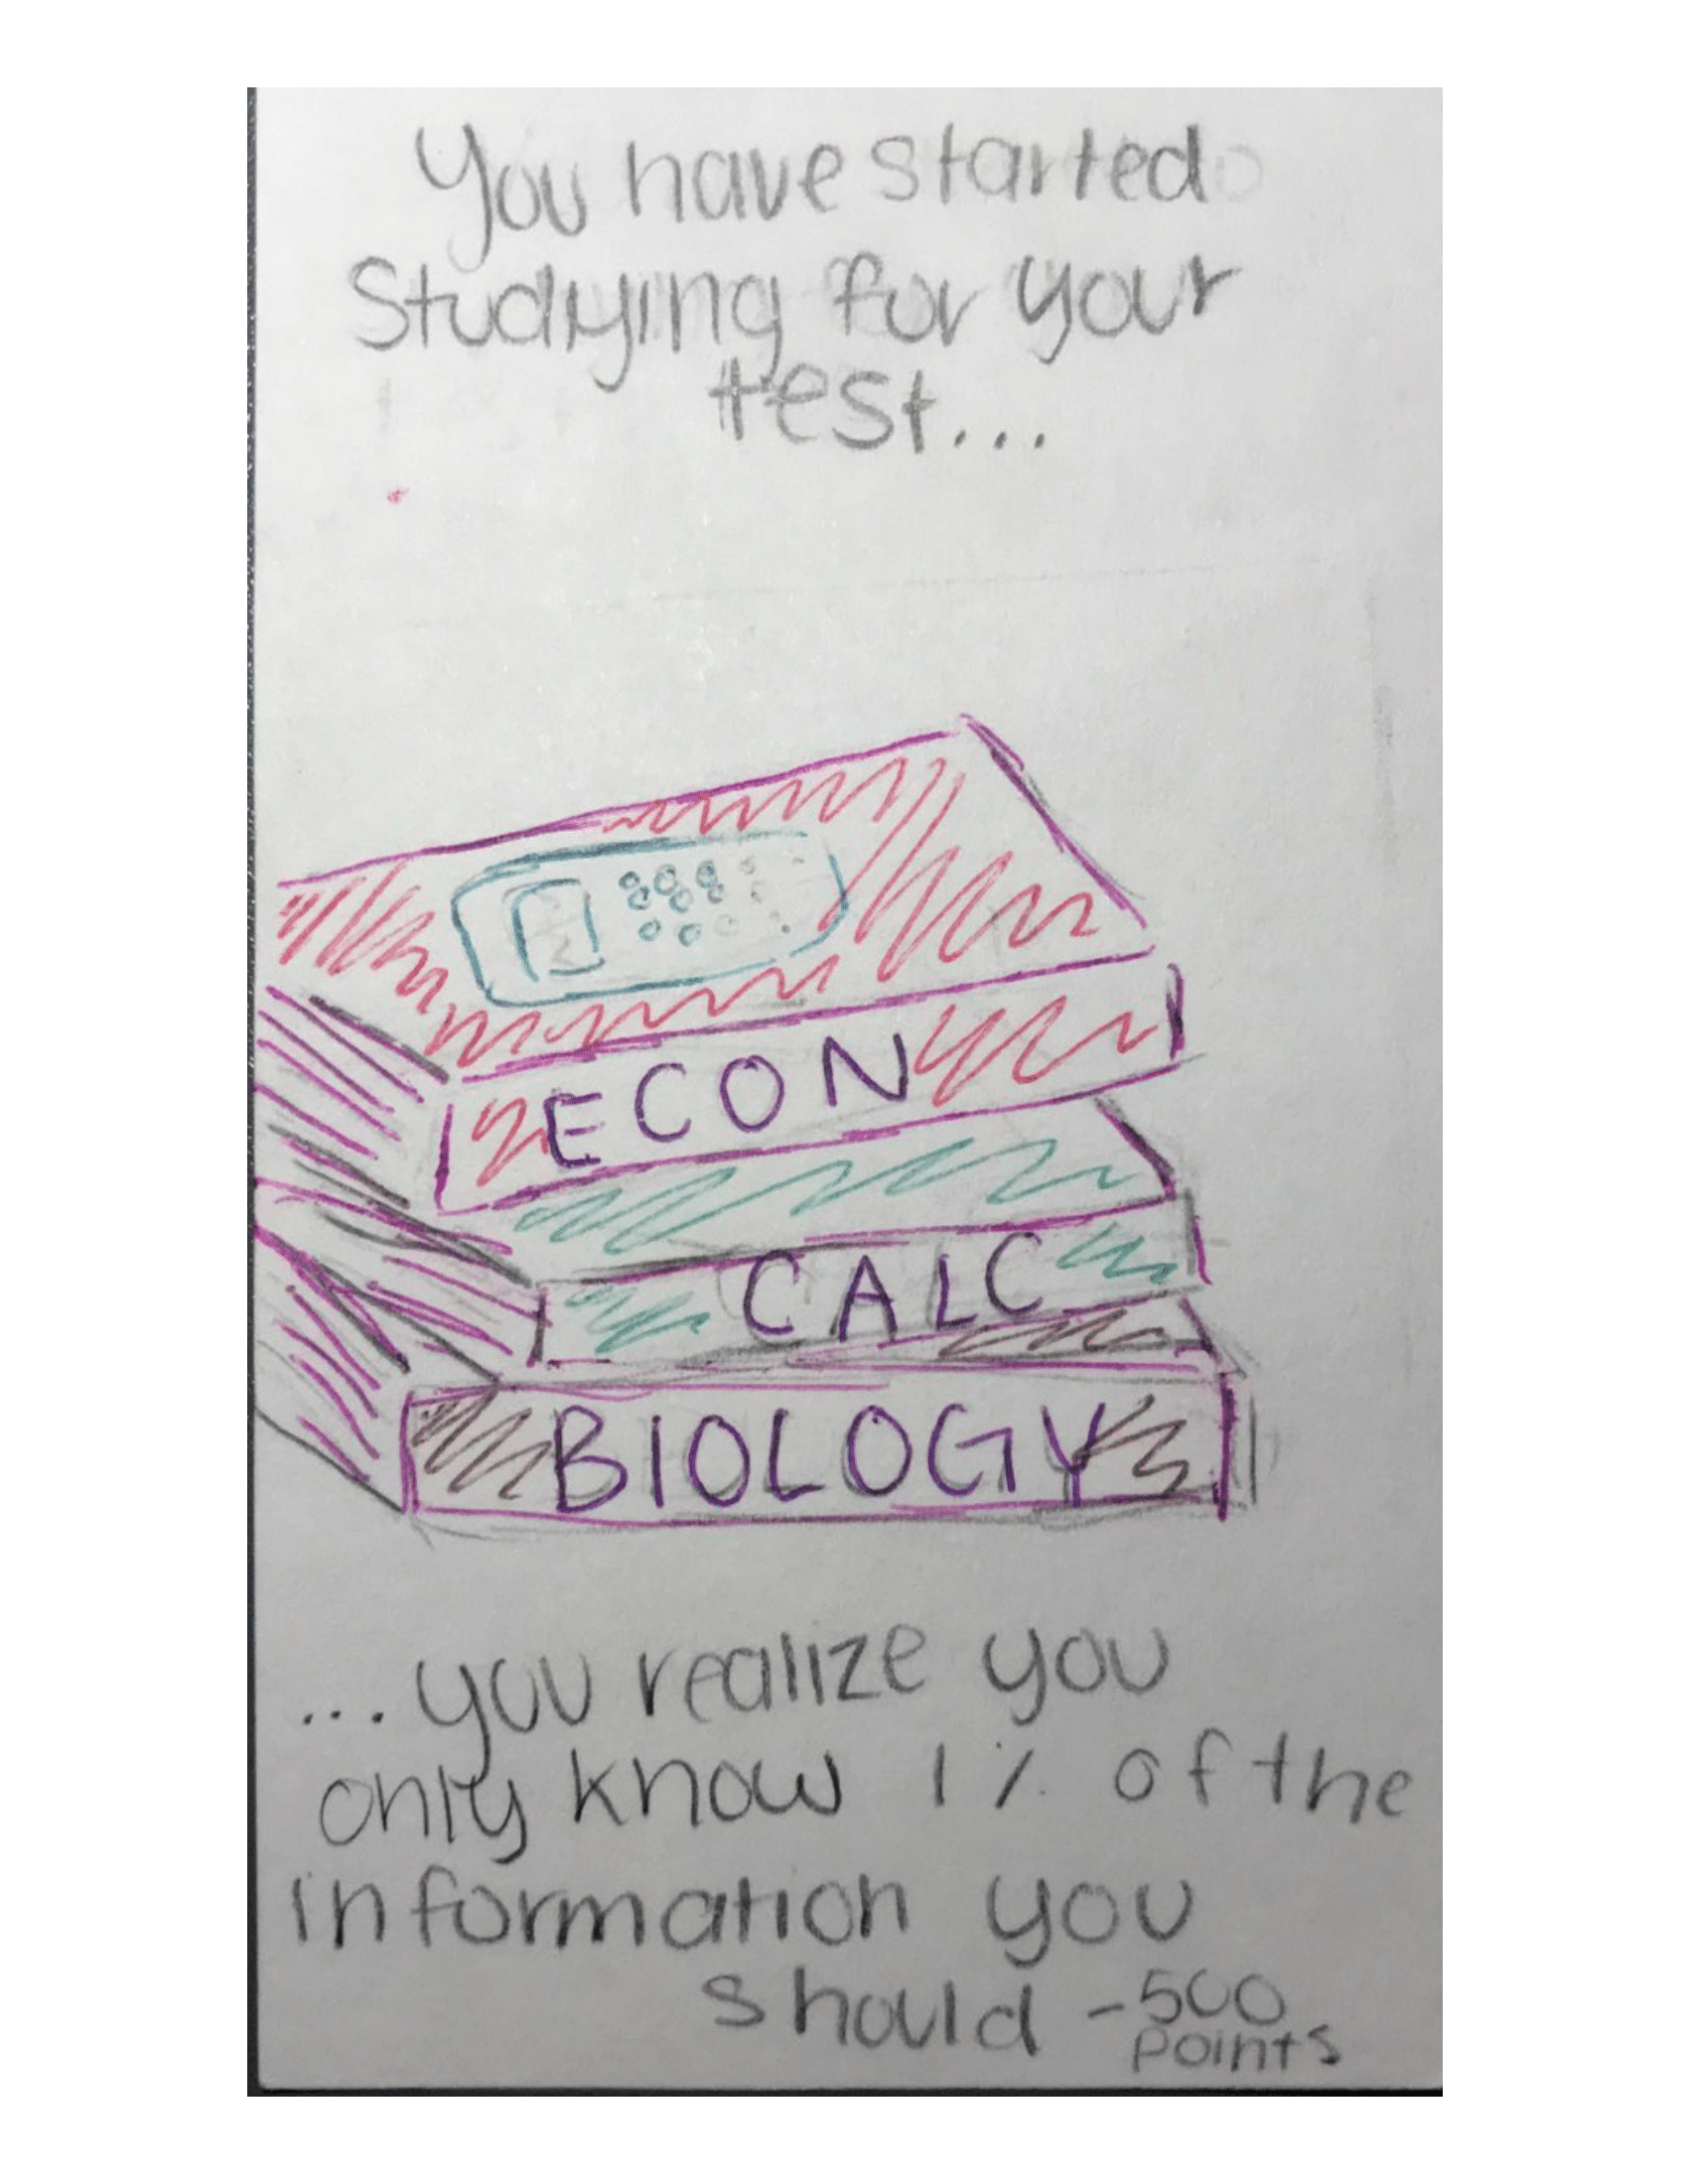 You have started
Studying for your
test...
ECON
CALC
BIOLOGY
...you realize you
only know 1% of the
information you
should -500
points